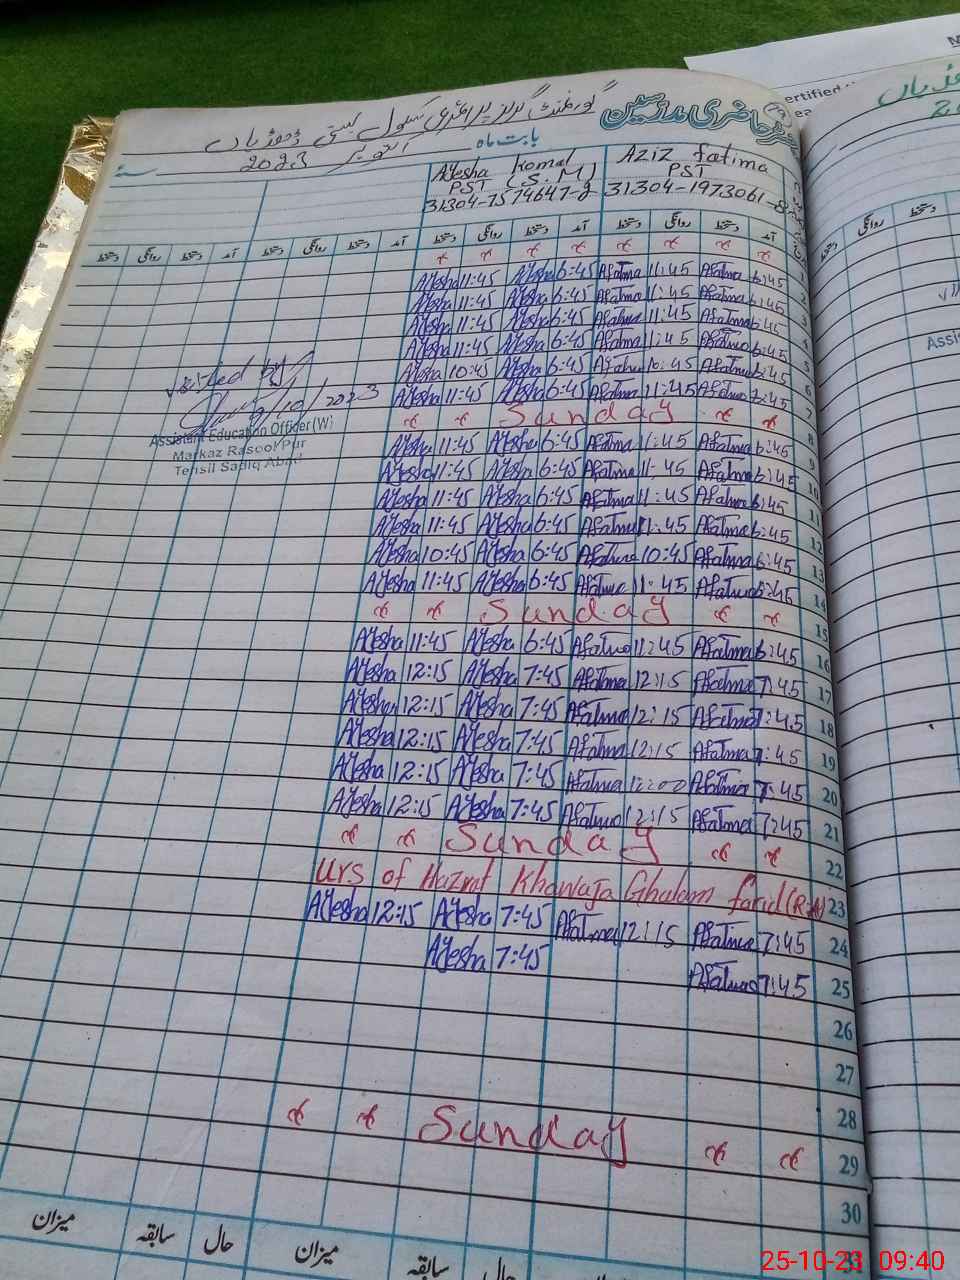 رجسٹر حاضری مدرسین
گورنمنٹ گرلز پرائمری سکول بستی
بابت ماہ اکتوبر 2023 سنہ
Aziz fatima
PST
31304-1973061-8
Ayesha Komal
PST (S.M)
31304-7574647-2
آمد دستخط روانگی دستخط آمد دستخط روانگی دستخط آمد دستخط روانگی دستخط
Ayesha 11:45 Ayesha 6:45 Afatima 11:45 Afatima 6:45 2
Ayesha 11:45 Ayesha 6:45 Afatima 11:45 Afatima 6:45 3
Ayesha 11:45 Ayesha 6:45 Afatima 11:45 Afatima 6:45 4
Ayesha 11:45 Ayesha 6:45 Afatima 11:45 Afatima 6:45 5
Ayesha 10:45 Ayesha 6:45 Afatima 10:45 Afatima 6:45 6
Ayesha 11:45 Ayesha 6:45 Afatima 11:45 Afatima 7:45 7
Sunday 8
Ayesha 11:45 Ayesha 6:45 Afatima 11:45 Afatima 6:45 9
Ayesha 11:45 Ayesha 6:45 Afatima 11:45 Afatima 6:45 10
Ayesha 11:45 Ayesha 6:45 Afatima 11:45 Afatima 6:45 11
Ayesha 11:45 Ayesha 6:45 Afatima 11:45 Afatima 6:45 12
Ayesha 10:45 Ayesha 6:45 Afatima 10:45 Afatima 6:45 13
Ayesha 11:45 Ayesha 6:45 Afatima 11:45 Afatima 6:45 14
Sunday 15
Ayesha 11:45 Ayesha 6:45 Afatima 11:45 Afatima 6:45 16
Ayesha 12:15 Ayesha 7:45 Afatima 12:15 Afatima 7:45 17
Ayesha 12:15 Ayesha 7:45 Afatima 12:15 Afatima 7:45 18
Ayesha 12:15 Ayesha 7:45 Afatima 12:15 Afatima 7:45 19
Ayesha 12:15 Ayesha 7:45 Afatima 12:00 Afatima 7:45 20
Ayesha 12:15 Ayesha 7:45 Afatima 12:15 Afatima 7:45 21
Sunday 22
Urs of Hazrat Khawaja Ghulam farid (R.A) 23
Ayesha 12:15 Ayesha 7:45 Afatima 12:15 Afatima 7:45 24
Ayesha 7:45 Afatima 7:45 25
26
27
28
Sunday 29
30
31
visited by
/10/2023
Assistant Education Officer (W)
Markaz Rasool Pur
Tehsil Sadiq Abad
حال سابقہ میزان حال سابقہ میزان
روانگی دستخط
Assis
25-10-23 09:40